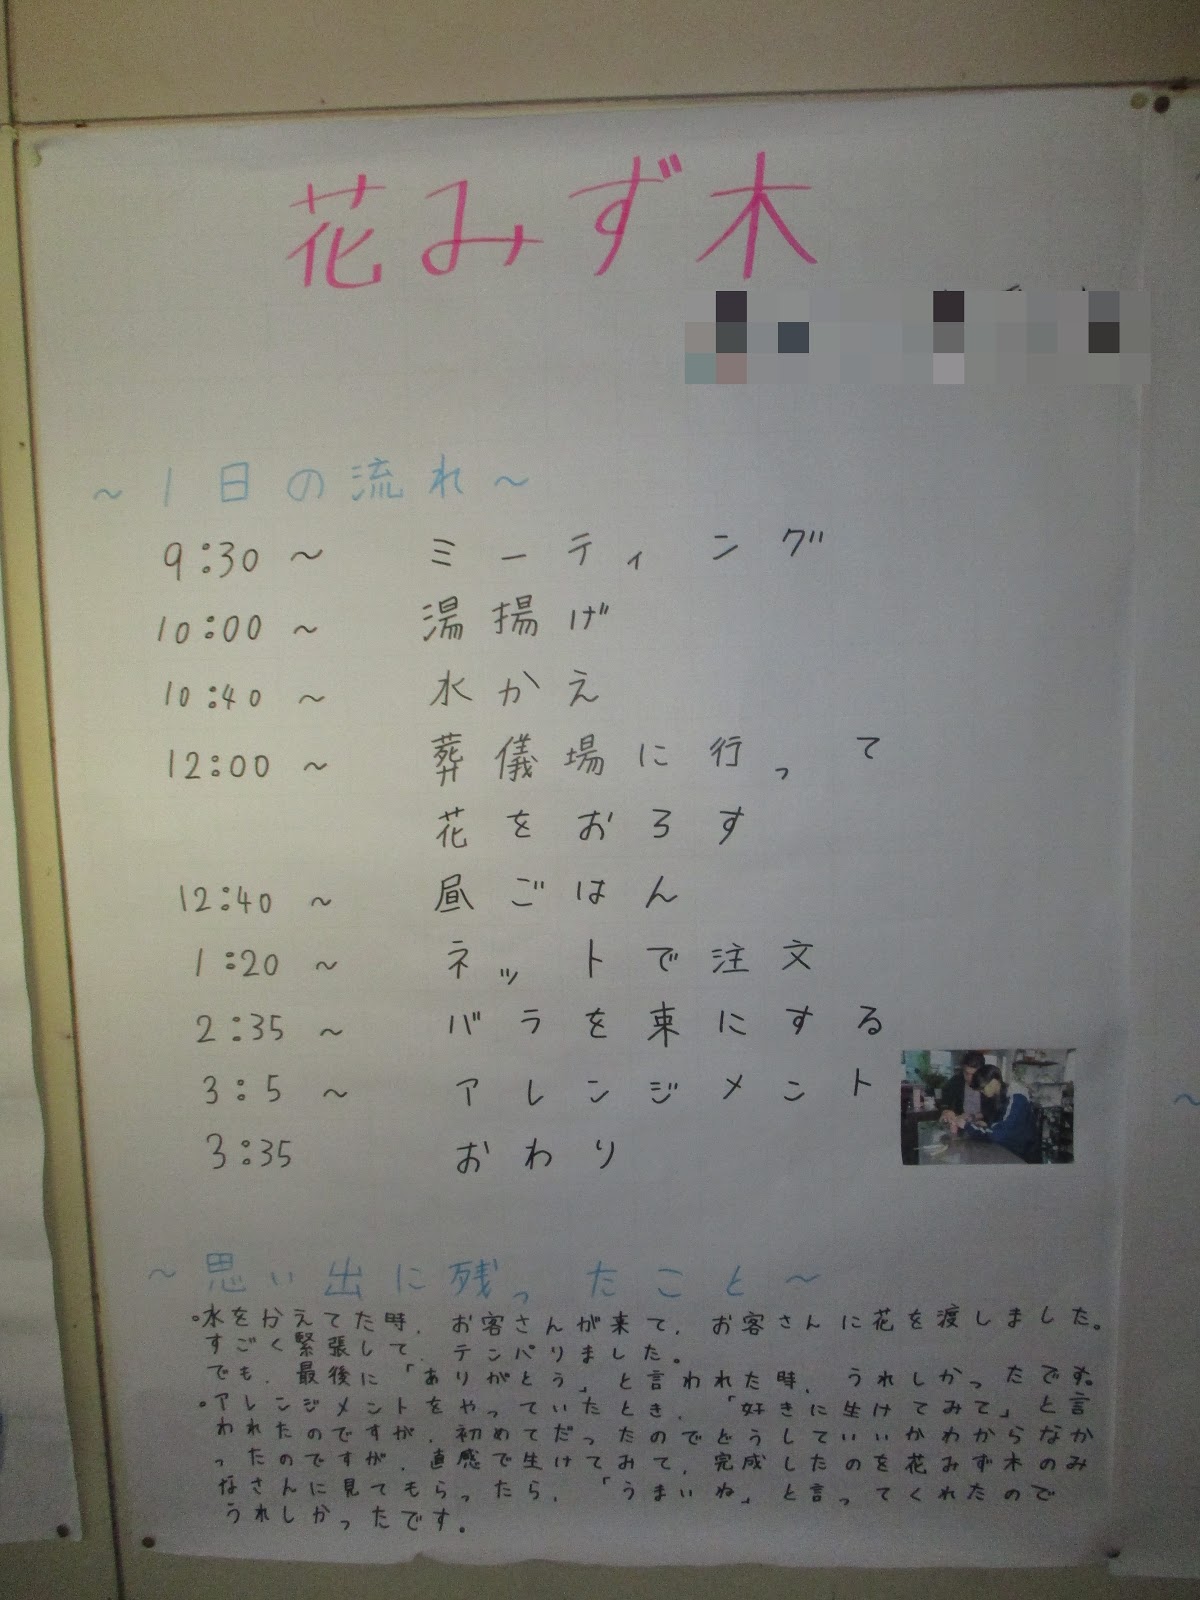 花みず木
~1日の流れ~
9:30~ ミーティング
10:00~ 湯揚げ
10:40~ 水かえ
12:00~ 葬儀場に行って
花をおろす
12:40~ 昼ごはん
1:20~ ネットで注文
2:35~ バラを束にする
3:5~ アレンジメント
3:35 おわり
~思い出に残ったこと~
・水をかえてた時、お客さんが来て、お客さんに花を渡しました。
すごく緊張して、テンパりました。
でも、最後に「ありがとう」と言われた時、うれしかったです。
・アレンジメントをやっていたとき、「好きに生けてみて」と言
われたのですが、初めてだったのでどうしていいかわからなか
ったのですが、直感で生けてみて、完成したのを花みず木のみ
なさんに見てもらったら、「うまいね」と言ってくれたので
うれしかったです。